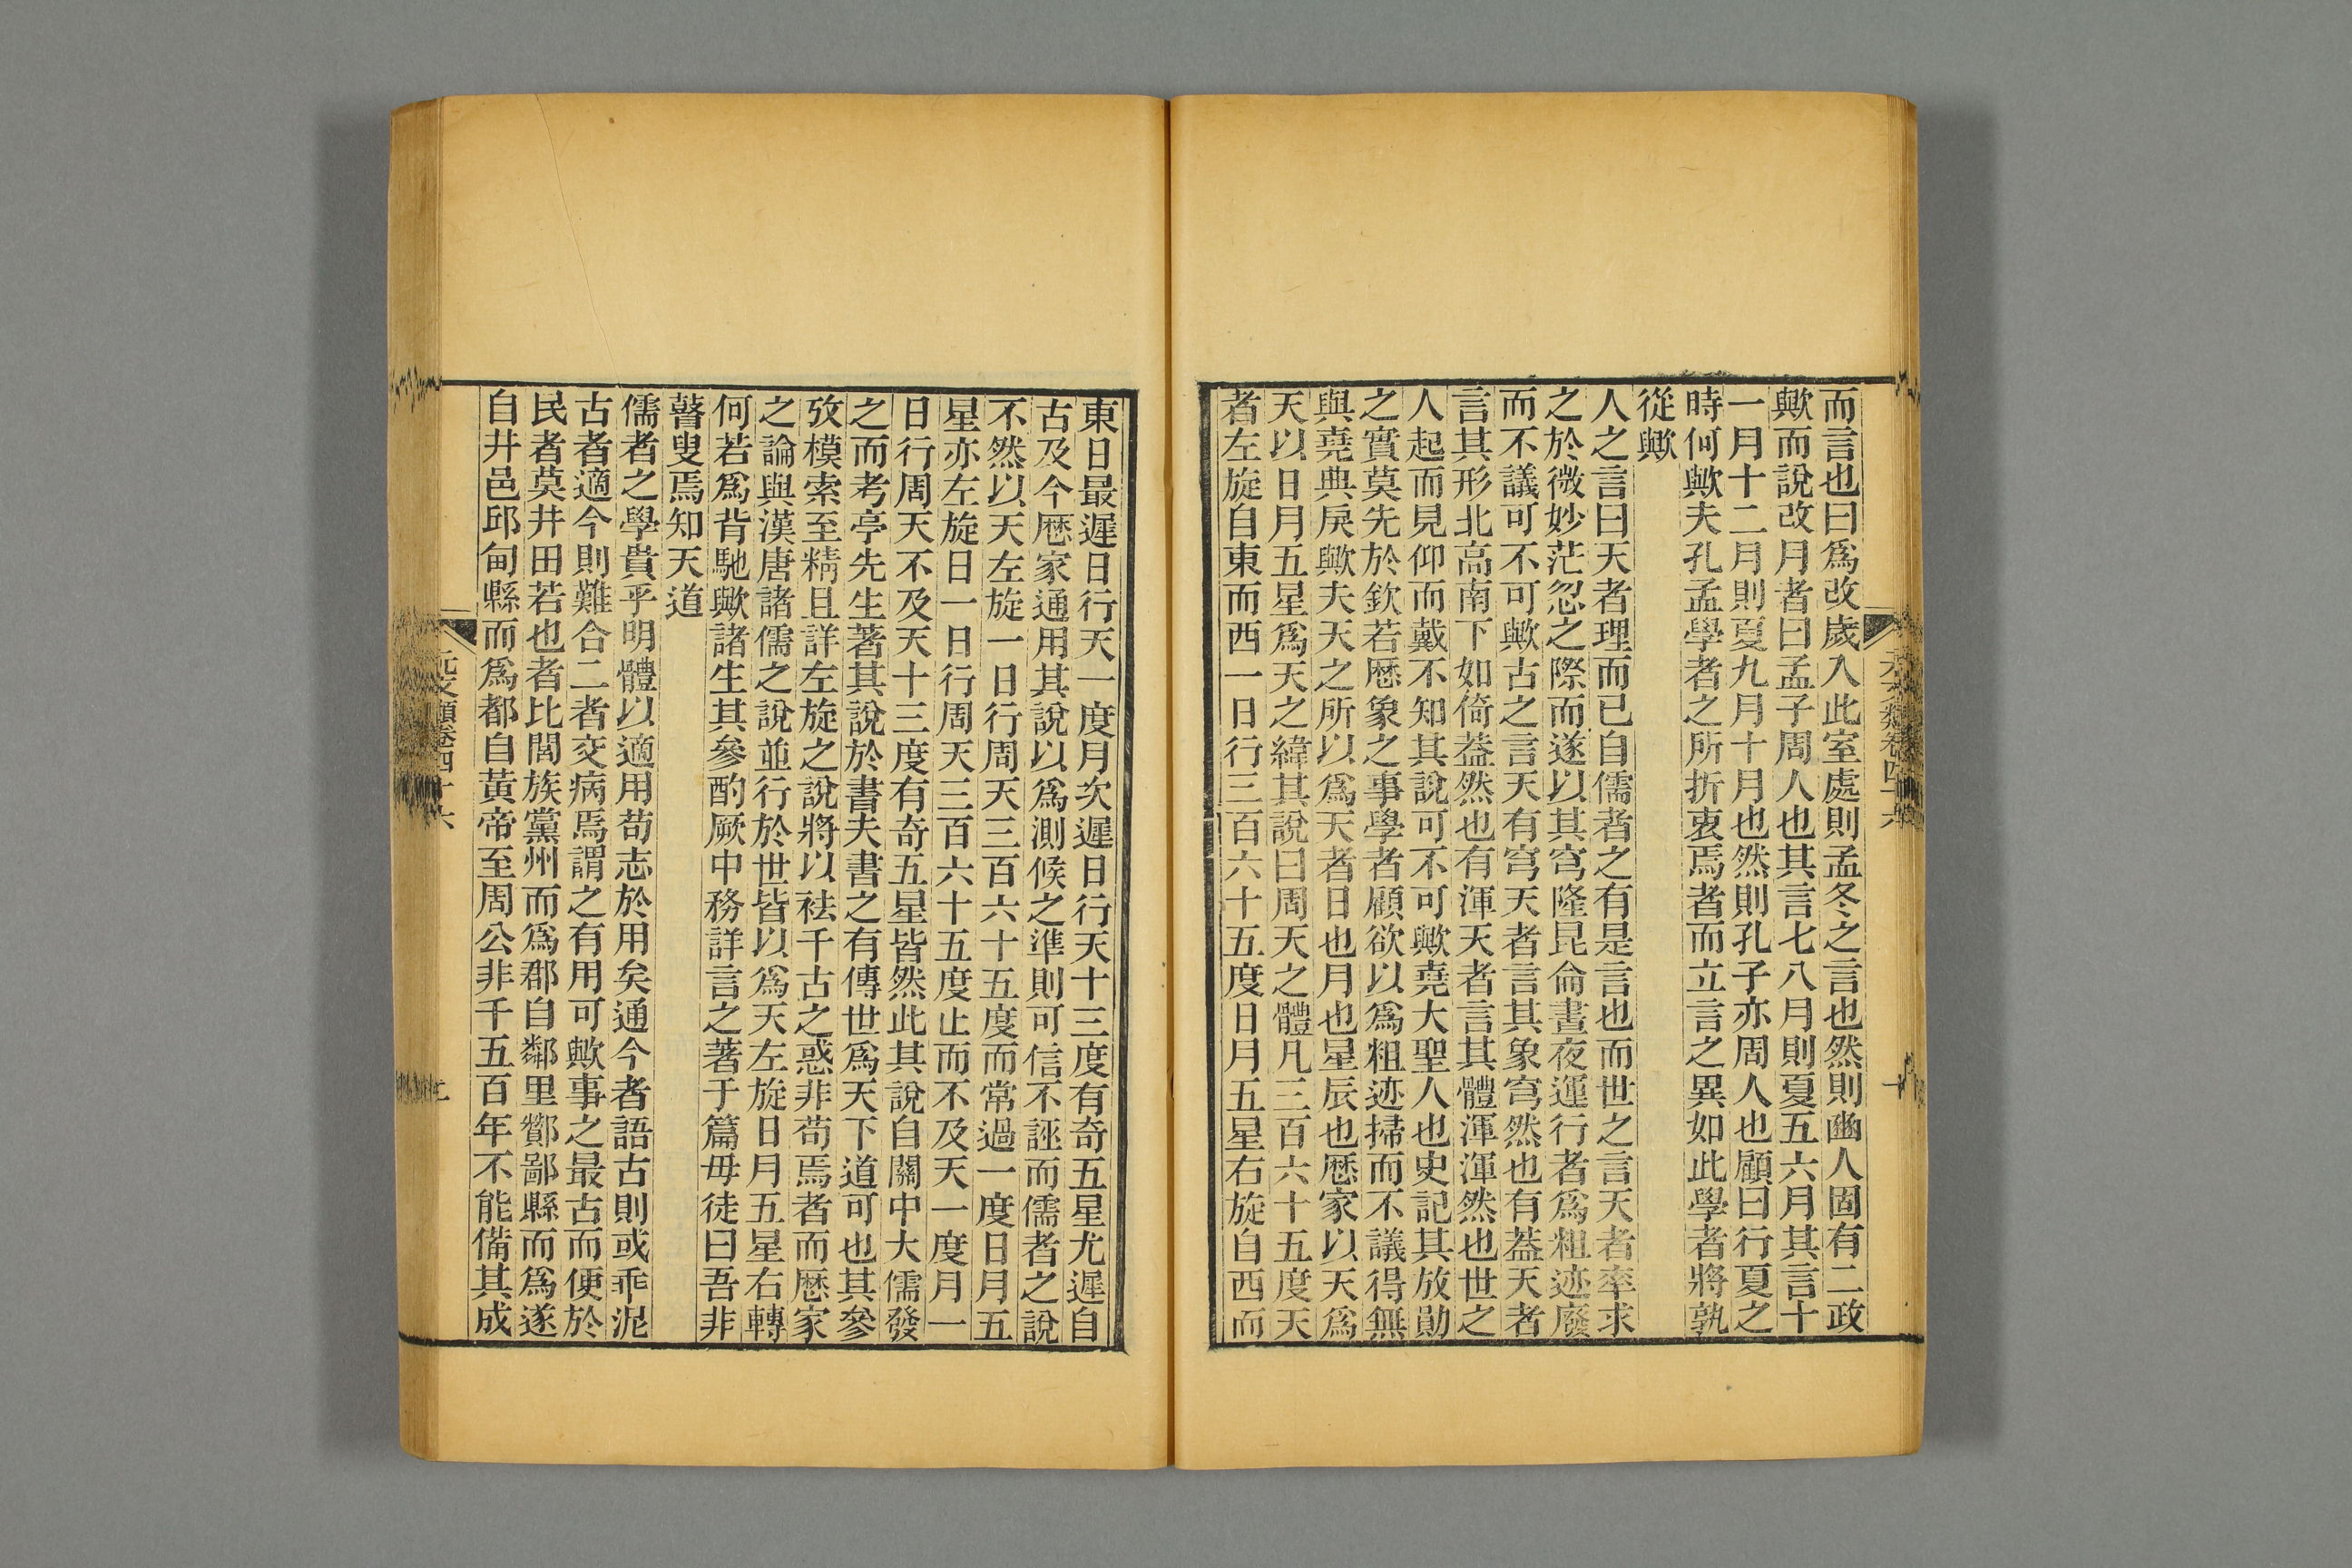 而言也曰爲改歲入此室處則孟冬之言也然則豳人固有二政
歟而說改月者曰孟子周人也其言七八月則夏五六月其言十
一月十二月則夏九月十月也然則孔子亦周人也顧曰行夏之
時何歟夫孔孟學者之所折衷焉者而立言之異如此學者將孰
從歟
人之言曰天者理而已自儒者之有是言也而世之言天者率求
之於微妙茫忽之際而遂以其穹隆昆侖晝夜運行者爲粗迹廢
而不議可不可歟古之言天有穹天者言其象穹然也有葢天者
言其形北高南下如倚葢然也有渾天者言其體渾渾然也世之
人起而見仰而戴不知其說可不可歟堯大聖人也史記其放勛
之實莫先於欽若厯象之事學者顧欲以爲粗迹掃而不議得無
與堯典戾歟夫天之所以爲天者日也月也星辰也厯家以天爲
天以日月五星爲天之緯其說曰周天之體凡三百六十五度天
者左旋自東而西一日行三百六十五度日月五星右旋自西而
東日最遲日行天一度月次遲日行天十三度有奇五星尤遲自
古及今厯家通用其說以爲測候之準則可信不誣而儒者之說
不然以天左旋一日行周天三百六十五度而常過一度日月五
星亦左旋日一日行周天三百六十五度止而不及天一度月一
日行周天不及天十三度有奇五星皆然此其說自關中大儒發
之而考亭先生著其說於書夫書之有傳世爲天下道可也其參
攷模索至精且詳左旋之說將以袪千古之惑非苟焉者而厯家
之論與漢唐諸儒之說並行於世皆以爲天左旋日月五星右轉
何若爲背馳歟諸生其參酌厥中務詳言之著于篇毋徒曰吾非
瞽叟焉知天道
儒者之學貴乎明體以適用苟志於用矣通今者語古則或乖泥
古者適今則難合二者交病焉謂之有用可歟事之最古而便於
民者莫井田若也者比閭族黨州而爲郡自鄰里酇鄙縣而爲遂
自井邑邱甸縣而爲都自黃帝至周公非千五百年不能備其成
元文類卷四十六